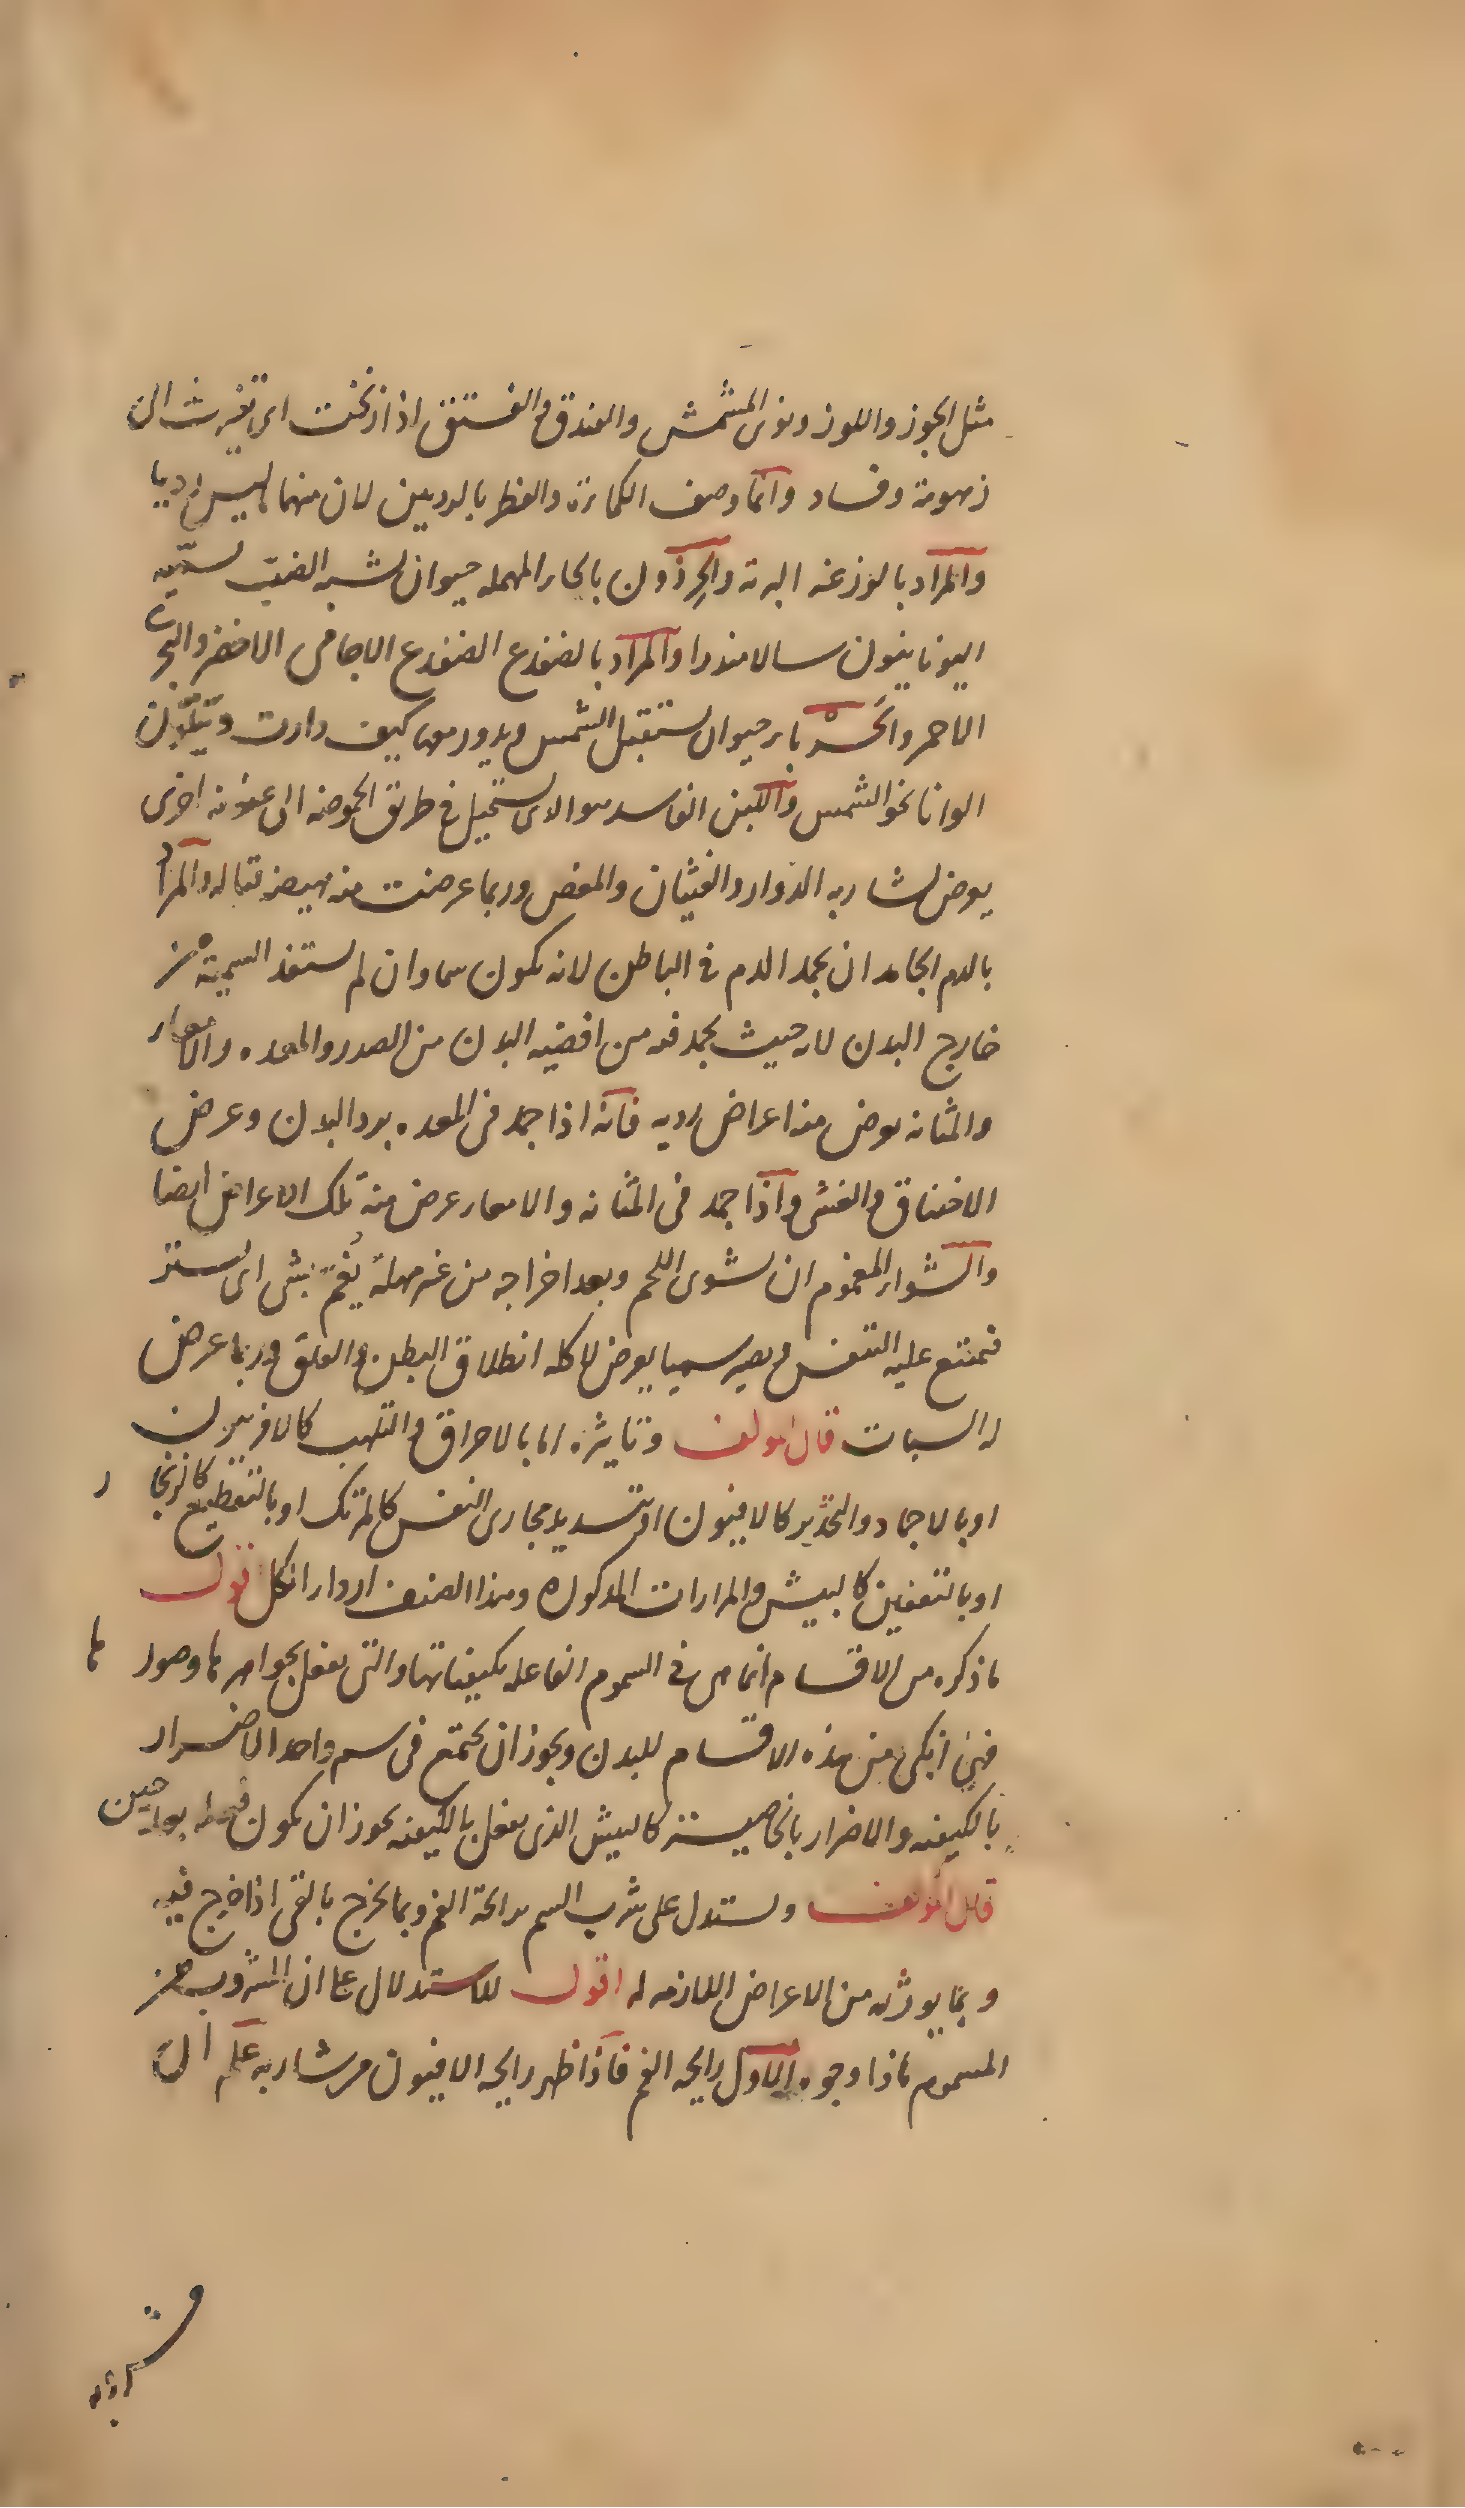 مثل الجوز واللوز ونوى المشمش والبندق والفستق اذا زنخت اى تغيرت الى
زهومة وفساد وانما وصف الكمأة والفطر بالرديين لان منهما ما ليس رديا
والمراد بالوزغه البرية والحرذون بالحاء المهمله حيوان يشبه الضب يسميه
اليونانيون سالامندرا والمراد بالضفدع الضفدع الاجامى الاخضر والبحرى
الاحمر والحرباء حيوان يستقبل الشمس ويدور معها كيف دارت ويتلون
الوانا نحو الشمس واللبن الفاسد هو الذى يستحيل فى طريق الحموضه الى عفونه اخرى
يعرض لشاربه الدوار والغثيان والمغص وربما عرضت منه هيضه قتاله والمراد
بالدم الجامد ان يجمد الدم فى الباطن لانه يكون سما وان لم يستفد السمية من
خارج البدن لانه حيث يجمد فيه من افضيه البدن من الصدر والمعده والامعاء
والمثانه يعرض منه اعراض رديه فانه اذا جمد فى المعده برد البدن وعرض
الاختناق والغشى واذا جمد فى المثانه والامعاء عرض منه تلك الاعراض ايضا
والشواء المغموم ان يشوى اللحم وبعد اخراجه من غير مهلة يُغَم بشى اى يستر
فيمتنع عليه التنفس ويصير سميا يعرض لآكله انطلاق البطن والقلق وربما عرض
له السبات قال المولف وتاثيره اما بالاحراق والتلهب كالافربيون
او بالاجماد والتخدير كالافيون او بتسديد مجارى النفس كالمرتك او بالتقطيع كالزنجار
او بالتعفين كالبيش والمرارات المذكوره وهذا الصنف اردأ الكل اقول
ما ذكره من الاقسام انما هى فى السموم الفاعله بكيفياتها والتى تفعل بجواهرها وصورها
فهى انكى من هذه الاقسام للبدن ويجوز ان يجتمع فى سم واحد الاضرار
بالكيفيه والاضرار بالخاصية كالبيش الذى يفعل بالكيفيه يجوز ان يكون
قال المولف ويستدل على شرب السم برائحة الفم وبما يخرج بالقى اذا خرج فيه
وبما يورثه من الاعراض اللازمه له اقول للاستدلال على ان المشروب من
المسموم ماذا وجوه الاول رايحه الفم فاذا ظهر رايحه الافيون من شاربه علم ان